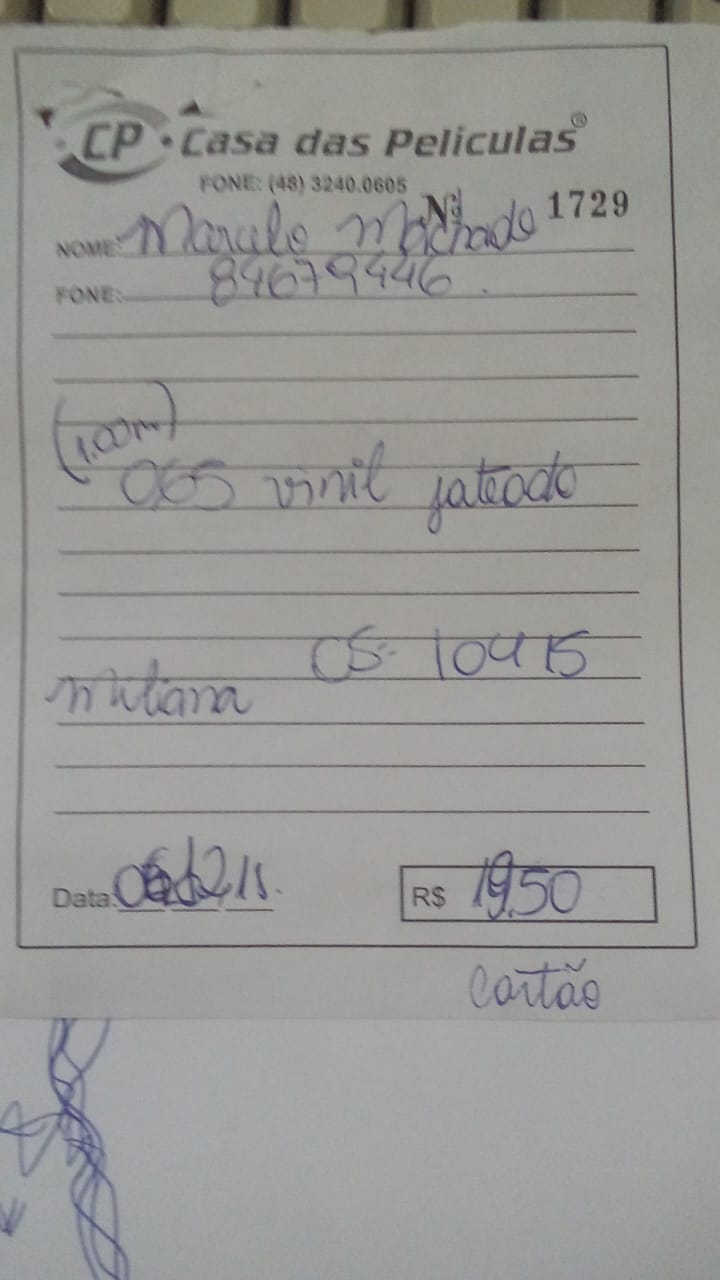 CP · Casa das Peliculas®
FONE: (48) 3240.0605
Nº 1729
NOME: Marcelo Machado
FONE: 84679446.
(1.00m)
065 vinil jateado
CS- 10415
Data: 12 15.
R$ 19,50
cartão